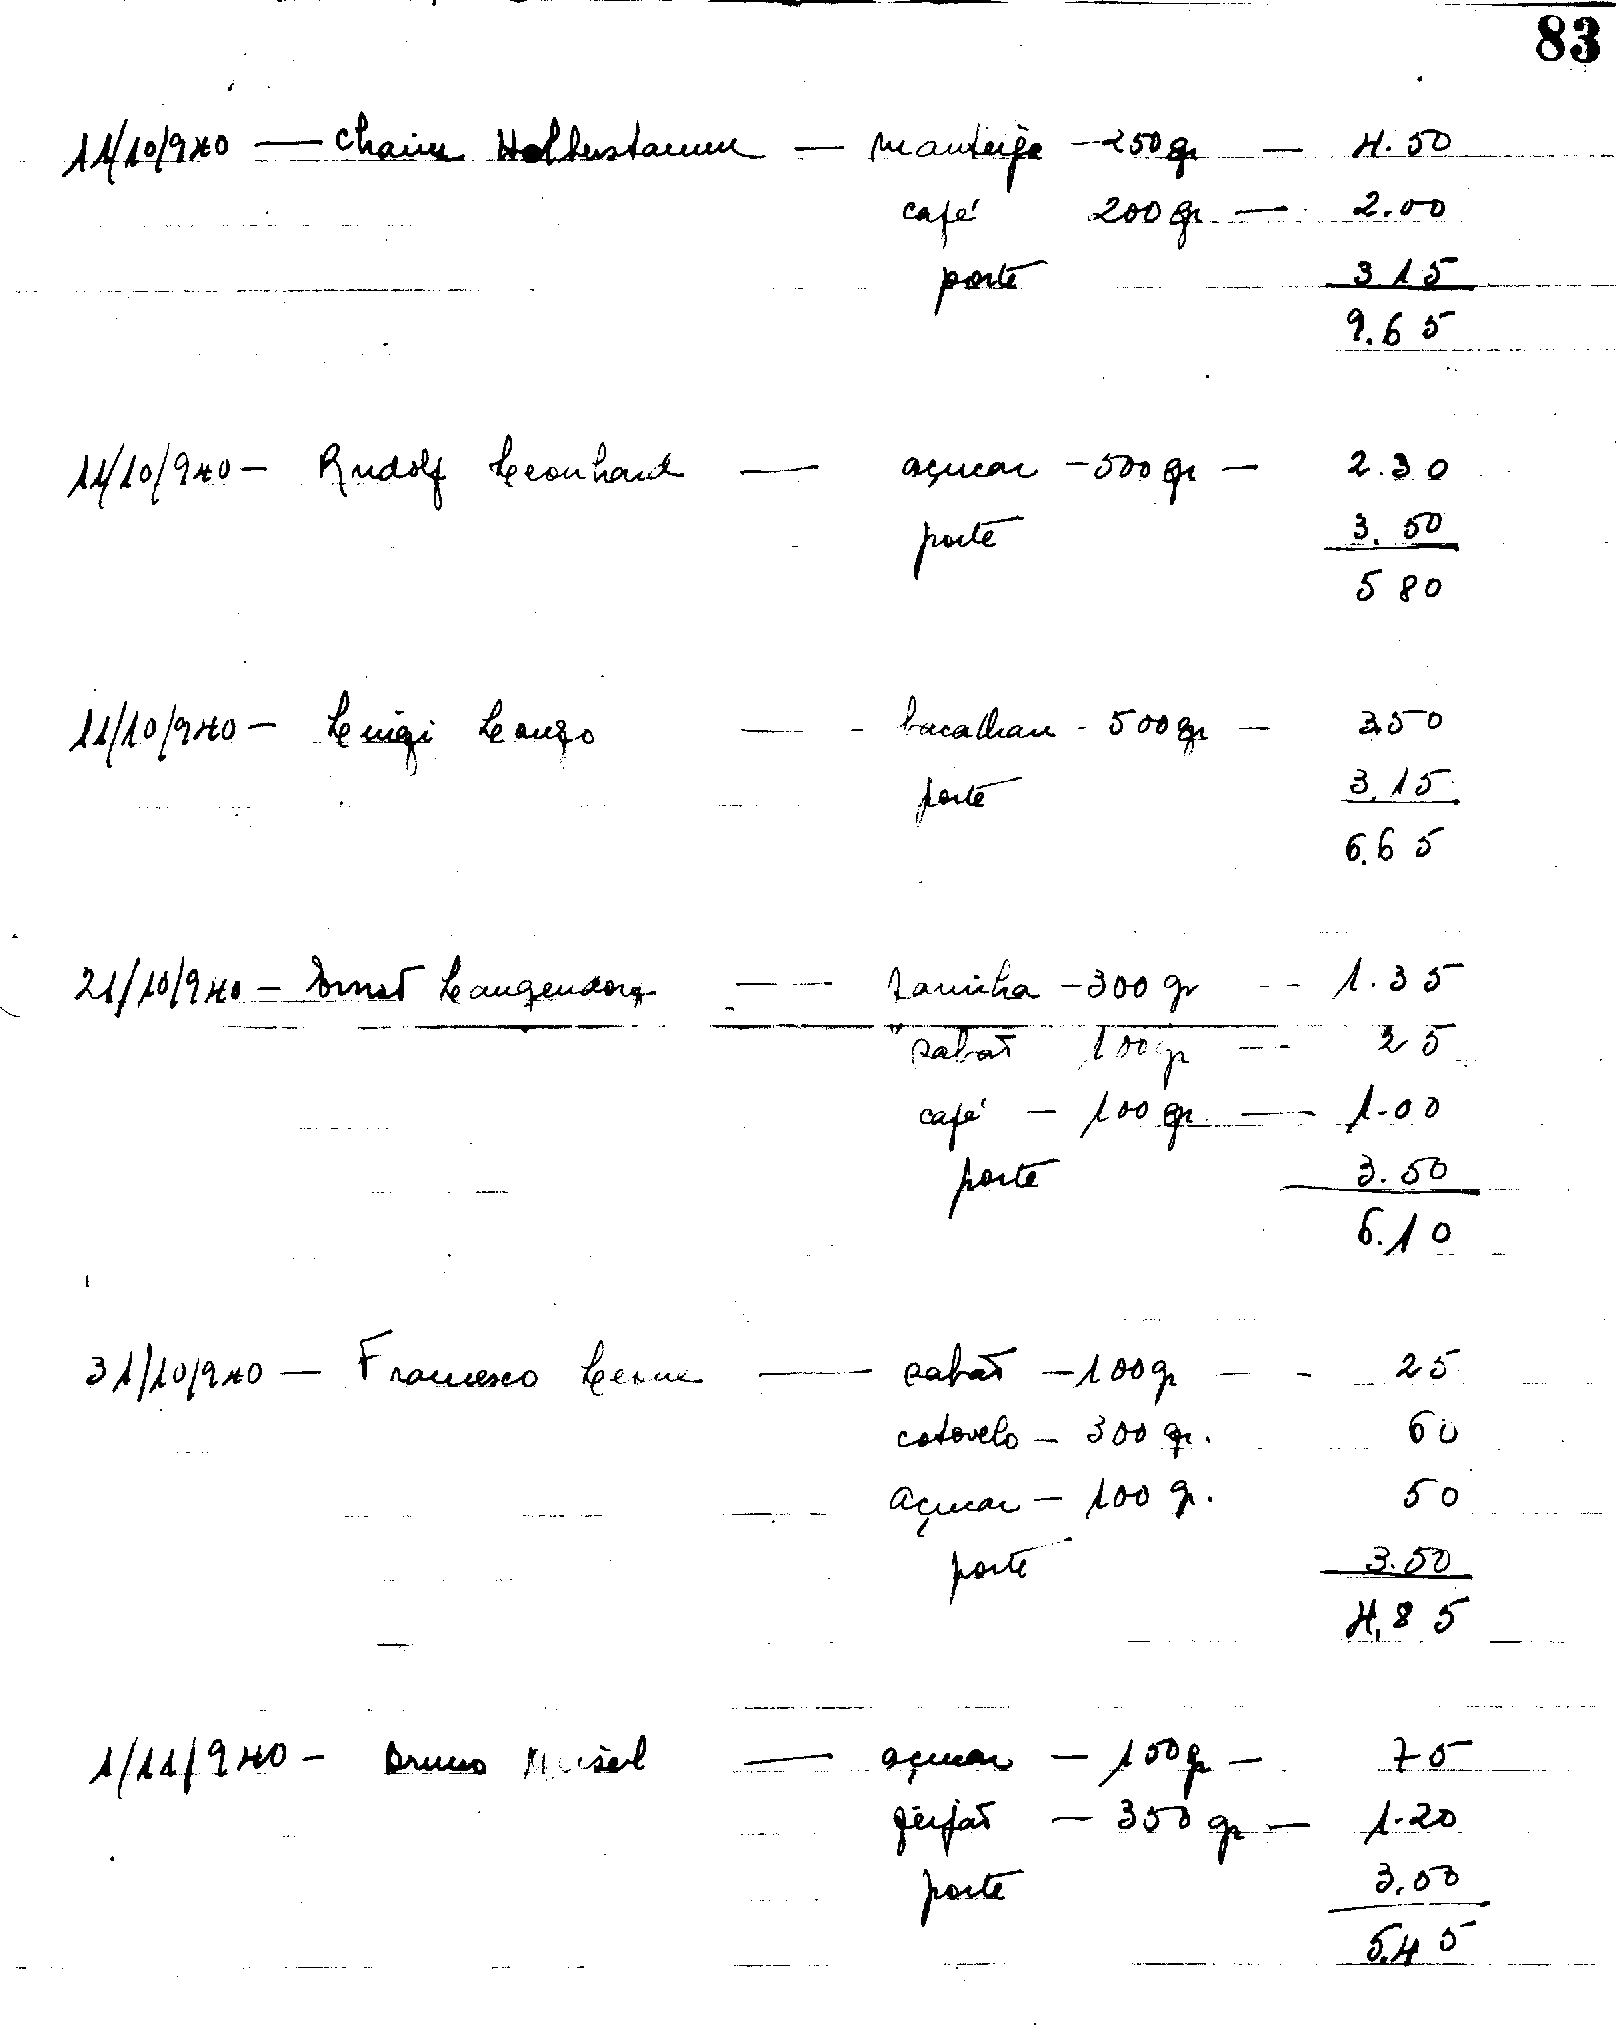 83
11/10/940 — Chaim Halberstamm — manteiga - 250 gr — 4.50
café 200 gr — 2.00
porte 3 15
9.65
11/10/940 — Rudolf Leonhard — açucar - 500 gr — 2.30
porte 3.50
5 80
11/10/940 — Luigi Longo — bacalhau - 500 gr — 3.50
porte 3.15
6.65
21/10/940 — Ernst Langendorf — - 300 gr -- 1.35
sabão 100 gr -- 25
café — 100 gr — 1-00
porte 3.50
6.10
31/10/940 — Francesco — sabão - 100 gr - - 25
cotovelo - 300 gr. 60
açucar - 100 gr. 50
porte 3.50
4,85
1/11/940 - Bruno — açucar — 150 gr — 75
feijão — 350 gr — 1-20
porte 3.50
5.45